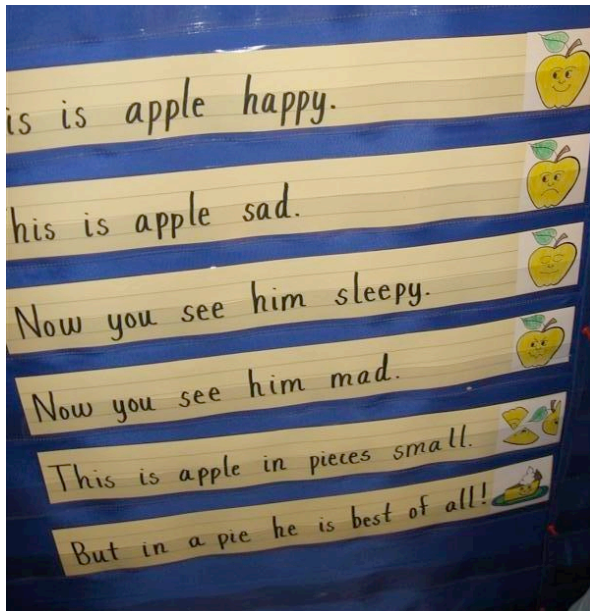 is is apple happy.
his is apple sad.
Now you see him sleepy.
Now you see him mad.
This is apple in pieces small.
But in a pie he is best of all!